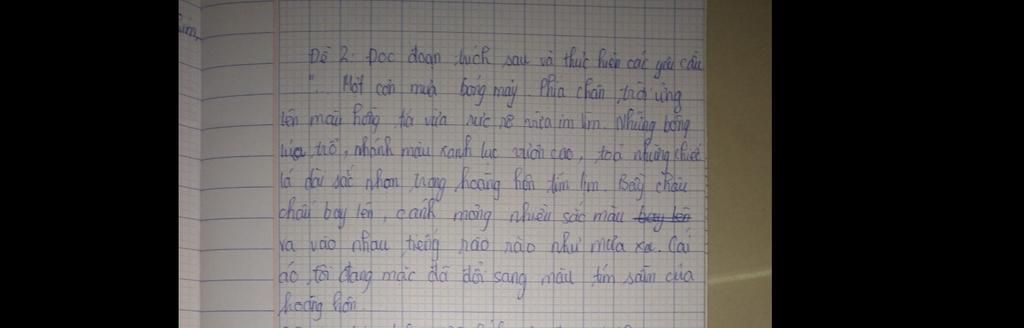 tím,
Đề 2: Đọc đoạn trích sau và thực hiện các yêu cầu
"... Một cơn mưa bóng mây. Phía chân trời ửng
lên màu hồng tía vừa rực rỡ vừa im lìm. Những bông
lúa trổ, nhánh màu xanh lục vươn cao, toả những chiếc
lá dài sắc nhọn trong hoàng hôn tím lịm. Bầy châu
chấu bay lên, cánh mỏng nhiều sắc màu bay lên
va vào nhau tiếng rào rào như mưa xa. Cái
áo tôi đang mặc đã đổi sang màu tím sẫm của
hoàng hôn